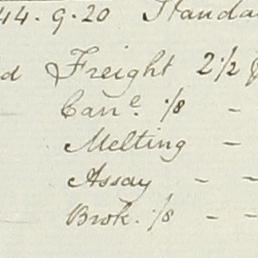 44.9.20 Standa
d Freight 2 1/2
Canᵉ. 1/8 -
Melting -
Assay - -
Brok. 1/8 - -